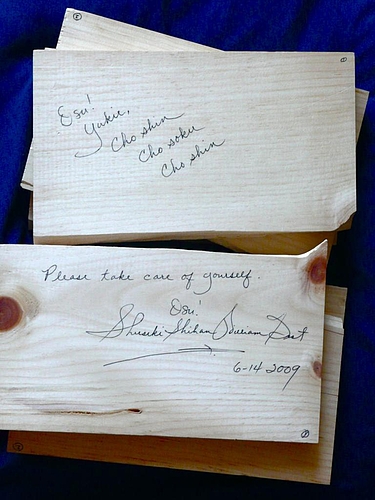 Osu!
Yukie,
Cho shin
Cho soku
Cho shin
Please take care of yourself.
Osu!
Shuseki Shihan William Best
6-14 2009